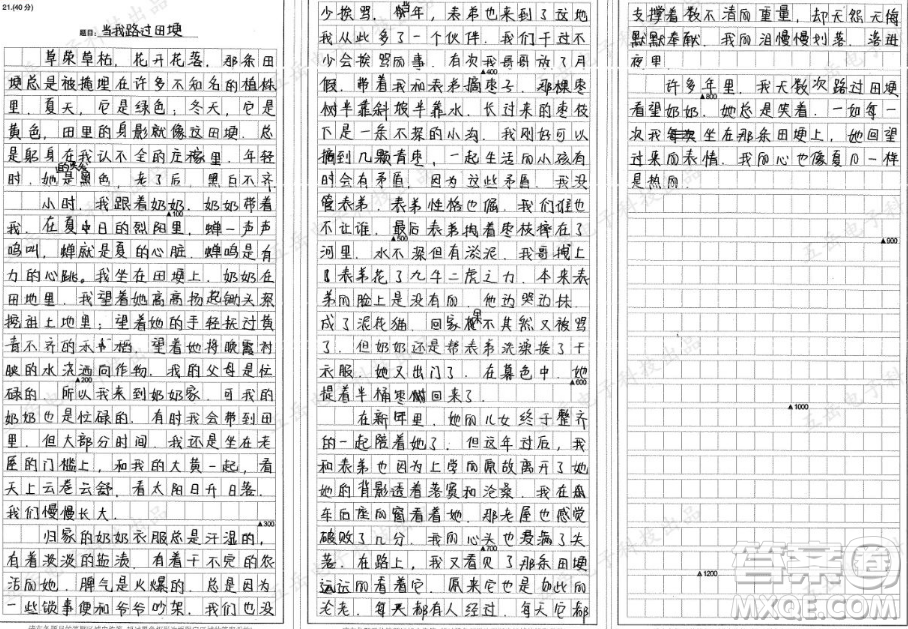 21.(40分)
题目：当我路过田埂
草荣草枯，花开花落，那条田
埂总是被掩埋在许多不知名的植株
里。夏天，它是绿色；冬天，它是
黄色，田里的身影就像这田埂，总
是躬身在我认不全的庄稼里。年轻
时，她是黑色，老了后，黑白不齐
小时，我跟着奶奶，奶奶带着
▲100
我。在夏日的烈阳里，蝉一声声
鸣叫，蝉就是夏的心脏，蝉鸣是有
力的心跳。我坐在田埂上，奶奶在
田地里，我望着她高高扬起锄头深
挖进土地里；望着她的手轻抚过黄
青不齐的水稻，望着她将晚霞衬
映的水浇洒向作物。我的父母是忙
▲200
碌的，所以我来到奶奶家，可我的
奶奶也是忙碌的，有时我会带到田
里，但大部分时间，我还是坐在老
屋的门槛上，和我的大黄一起，看
天上云卷云舒，看太阳日升日落。
我们慢慢长大。
▲300
归家的奶奶衣服总是汗湿的，
有着淡淡的盐渍，有着干不完的农
活的她，脾气是火爆的，总是因为
一些琐事便和爷爷吵架，我们也没
少挨骂。当年，表弟也来到了这地
我从此多了一个伙伴。我们干过不
少会挨骂的事，有次我哥哥放了月
▲400
假，带着我和表弟摘枣子，那棵枣
树半靠斜坡半靠水，长过来的枣枝
下是一条不深的小沟，我刚好可以
摘到几颗青枣，一起生活的小孩有
时会有矛盾，因为这些矛盾，我没
管表弟，表弟性格也倔，我们谁也
不让谁，最后表弟拽着枣枝摔在了
▲500
河里，水不深但有淤泥，我哥拽上
了表弟花了九牛二虎之力，本来表
弟的脸上是没有的，他边哭边抹，
成了泥花猫，回家果不其然又被骂
了，但奶奶还是帮表弟洗澡换了干
衣服，她又出门了，在暮色中，她
▲600
提着半桶枣回来了。
在新年里，她的儿女终于整齐
的一起陪着她了，但这年过后，我
和表弟也因为上学的原故离开了她
她的背影透着落寞和沧桑，我在
车后座的窗看着她，那老屋也感觉
破败了几分，我的心头也装满了失
▲700
落，在路上，我又看见了那条田埂
远远的看着它，原来它也是如此的
沧老，每天都有人经过，每天它都
支撑着数不清的重量，却无怨无悔
默默奉献，我的泪慢慢划落，落进
夜里。
许多年里，我无数次路过田埂
▲800
看望奶奶，她总是笑着，一如每一
次我坐在那条田埂上，她回望
过来的表情，我的心也像夏日一样
是热的。
▲900
▲1000
▲1200
五岳电子科技出品
答案圈
MXQE.COM